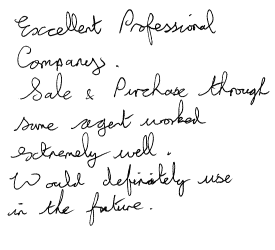 Excellent Professional
Companys.
Sale & Purchase through
same agent worked
extremely well.
Would definitely use
in the future.